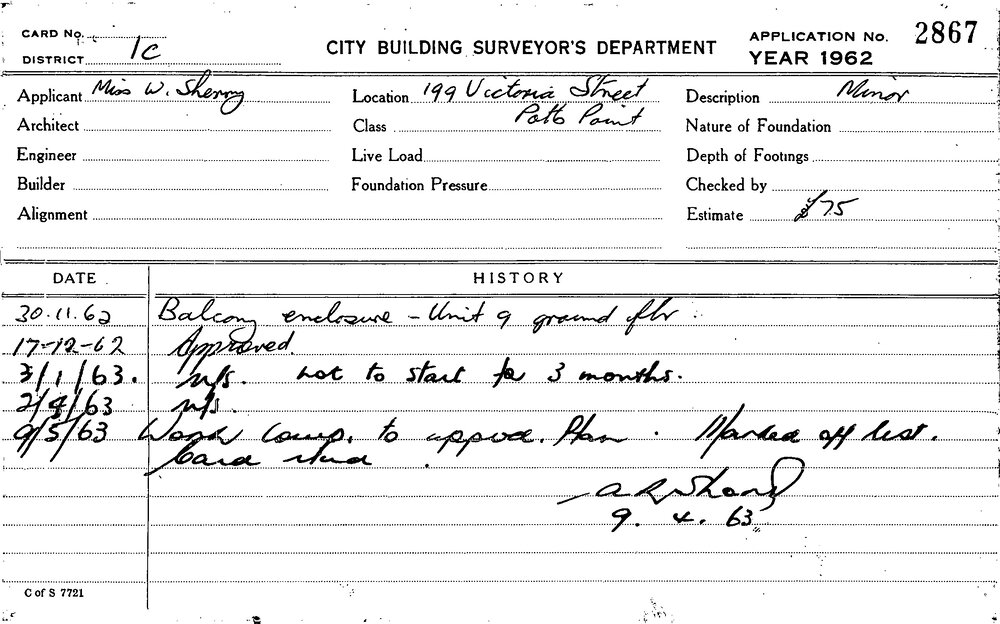 CARD No.
DISTRICT 1C
CITY BUILDING SURVEYOR'S DEPARTMENT
APPLICATION No. 2867
YEAR 1962
Applicant Miss W. Sherry Location 199 Victoria Street Description Minor
Architect Class Potts Point Nature of Foundation
Engineer Live Load Depth of Footings
Builder Foundation Pressure Checked by
Alignment Estimate £75
DATE HISTORY
30.11.62 Balcony enclosure - Unit 9 ground flr
17-12-62 Approved.
3/1/63. n/s. not to start for 3 months.
2/4/63 n/s.
9/5/63 Work comp. to approd. Plan. Marked off list.
Card
9. 4. 63
C of S 7721